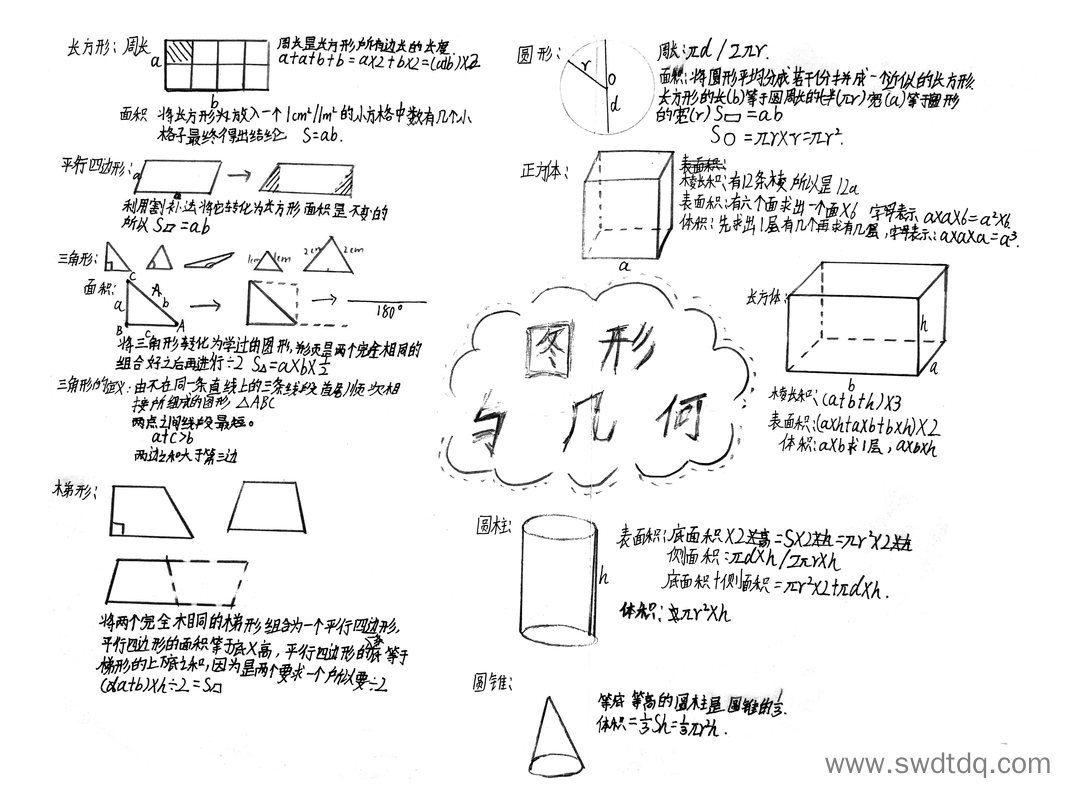 长方形：周长
周长是长方形所有边长的长度.
a+a+b+b=a×2+b×2=(a+b)×2
a
b
面积 将长方形放入一个1cm²/1m²的小方格中数有几个小
格子最终得出结论 S=ab.
平行四边形：
a
利用割补法将它转化为长方形面积是不变的
所以S▱=ab
三角形：
1cm 1cm
2cm 2cm
面积：
C
a
A
b
B
c
A
180°
将三角形转化为学过的图形,前页是两个完全相同的
组合好之后再进行÷2 S△=a×b×½
三角形的定义：由不在同一条直线上的三条线段首尾顺次相
接所组成的图形 △ABC
两点之间线段最短。
a+c>b
两边之和大于第三边
梯形：
将两个完全相同的梯形组合为一个平行四边形,
平行四边形的面积等于底×高，平行四边形的底等于
梯形的上下底之和,因为是两个要求一个所以要÷2
(a+b)×h÷2=S
图形
与几何
圆形：
r
O
d
周长：πd/2πr.
面积：将圆形平均分成若干份并拼成一个近似的长方形.
长方形的长(b)等于圆周长的一半(πr)宽(a)等于圆形
的宽(r) S▭=ab
S○=πr×r=πr².
正方体：
a
表面积：
棱长和：有12条棱所以是12a
表面积：有六个面求出一个面×6 字母表示 a×a×6=a²×6
体积：先求出1层有几个再求有几层,字母表示：a×a×a=a³.
长方体：
h
a
b
棱长和：(a+b+h)×3
表面积：(a×h+a×b+b×h)×2
体积：a×b求1层，a×b×h
圆柱：
h
表面积：底面积×2×高=S×2×h=πr²×2×h
侧面积=πd×h/2πr×h
底面积+侧面积=πr²×2+πd×h.
体积：πr²×h
圆锥：
等底等高的圆柱是圆锥的⅓.
体积=⅓Sh=⅓πr²h.
www.swdtdq.com